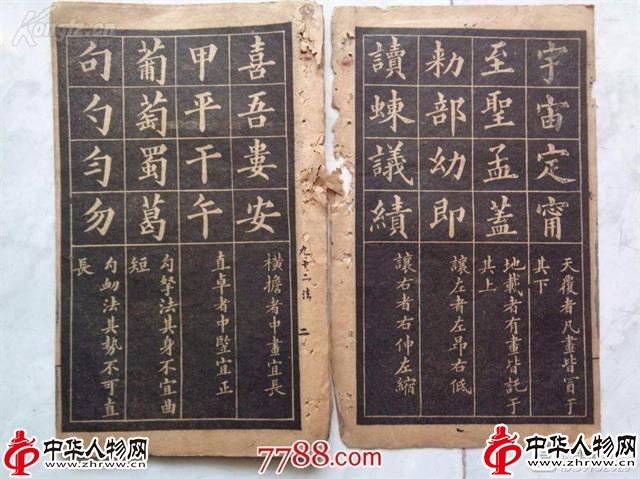 宇宙定甯
天覆者凡畫皆冒于
其下
至聖孟蓋
地載者有畫皆託于
其上
勑部幼即
讓左者左昂右低
讀蝀議績
讓右者右伸左縮
九十二法 二
喜吾婁安
橫擔者中畫宜長
甲平干午
直卓者中竪宜正
葡萄蜀葛
勾法其身不宜曲
短
句勺匀勿
勾法其勢不可直
長
中华人物网
www.zhrww.cn
7788.com
中华人物网
www.zhrww.cn